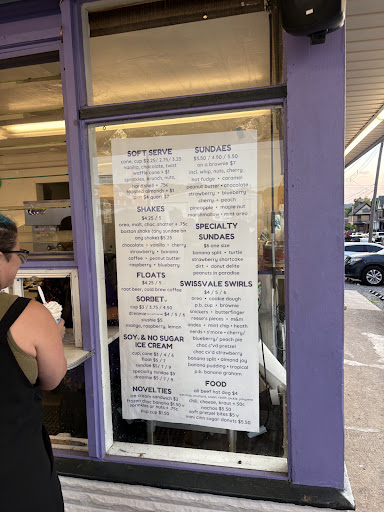 SOFT SERVE
cone, cup $2.25 / 2.75 / 3.25
vanilla, chocolate, twist
waffle cone + $1
sprinkles, crunch, nuts,
hard shell + .75¢
crushed almonds + $1
SHAKES
$4.25 / 5
oreo, malt, choc, shatter + .75¢
boston shake (any sundae on
any shake) $5.25
chocolate • vanilla • cherry
strawberry • banana
coffee • peanut butter
raspberry • blueberry
FLOATS
$4.25 / 5
root beer, cold brew coffee
SORBET
cup $3 / 3.75 / 4.50
slushie $5
mango, raspberry, lemon
SOY & NO SUGAR
ICE CREAM
cup, cone $3 / 4 / 5
float $5 / 7
sundae $5 / 7 / 9
specialty sundae $9
dreamie $5 / 7 / 9
NOVELTIES
ice cream sandwich $3
frozen choc banana $2.50
sprinkles or nuts + .75¢
pup cup $1.50
SUNDAES
$3.50 / 4.50 / 5.50
on a brownie $7
incl. whip, nuts, cherry
hot fudge • caramel
peanut butter • chocolate
strawberry • blueberry
cherry • peach
pineapple • maple nut
marshmallow • mint oreo
SPECIALTY
SUNDAES
$6 one size
banana split • turtle
strawberry shortcake
dirt • donut delite
peanuts in paradise
SWISSVALE SWIRLS
$4 / 5 / 6
oreo • cookie dough
p.b. cup • brownie
snickers • butterfinger
reese's pieces • m&m
smores • mint chip • heath
nerds • s'more • cherry
blueberry • peach pie
choc cvd pretzel
choc cv'd strawberry
banana split • almond joy
banana pudding • tropical
p.b. banana graham
FOOD
all beef hot dog $4
chili, cheese, kraut + .50¢
nachos $3.50
soft pretzel bites $5
mini cin sugar donuts $5.50